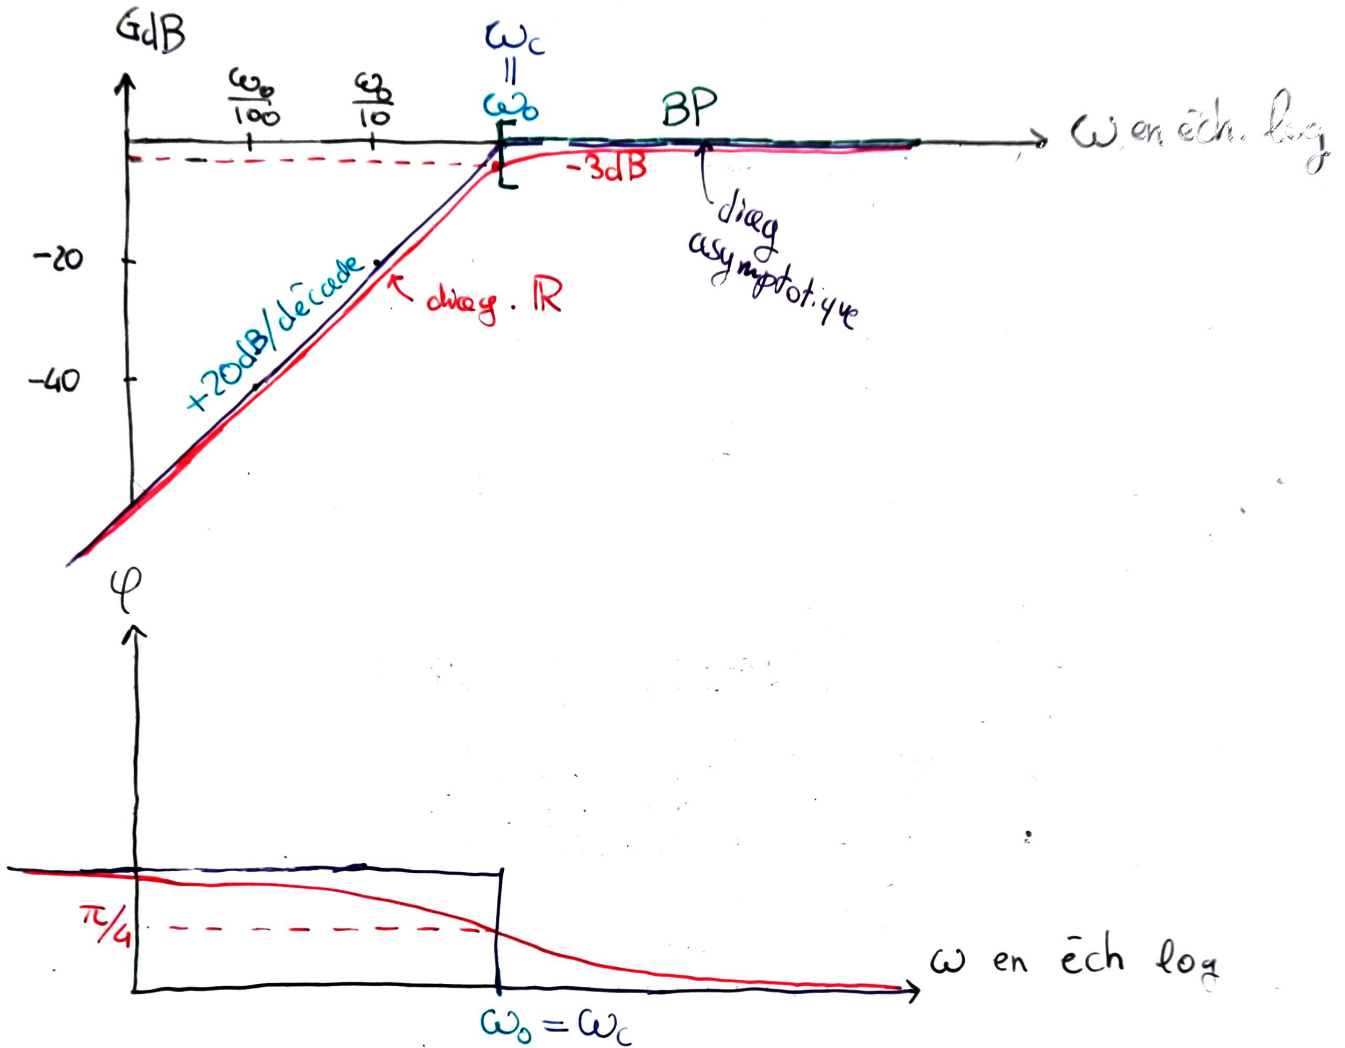 GdB
ωc
॥
ω₀/100
ω₀/10
ω₀
BP
ω en éch. log
-3dB
diag
asymptotique
-20
diag. ℝ
+20dB/décade
-40
φ
π/4
ω en éch log
ω₀ = ωc